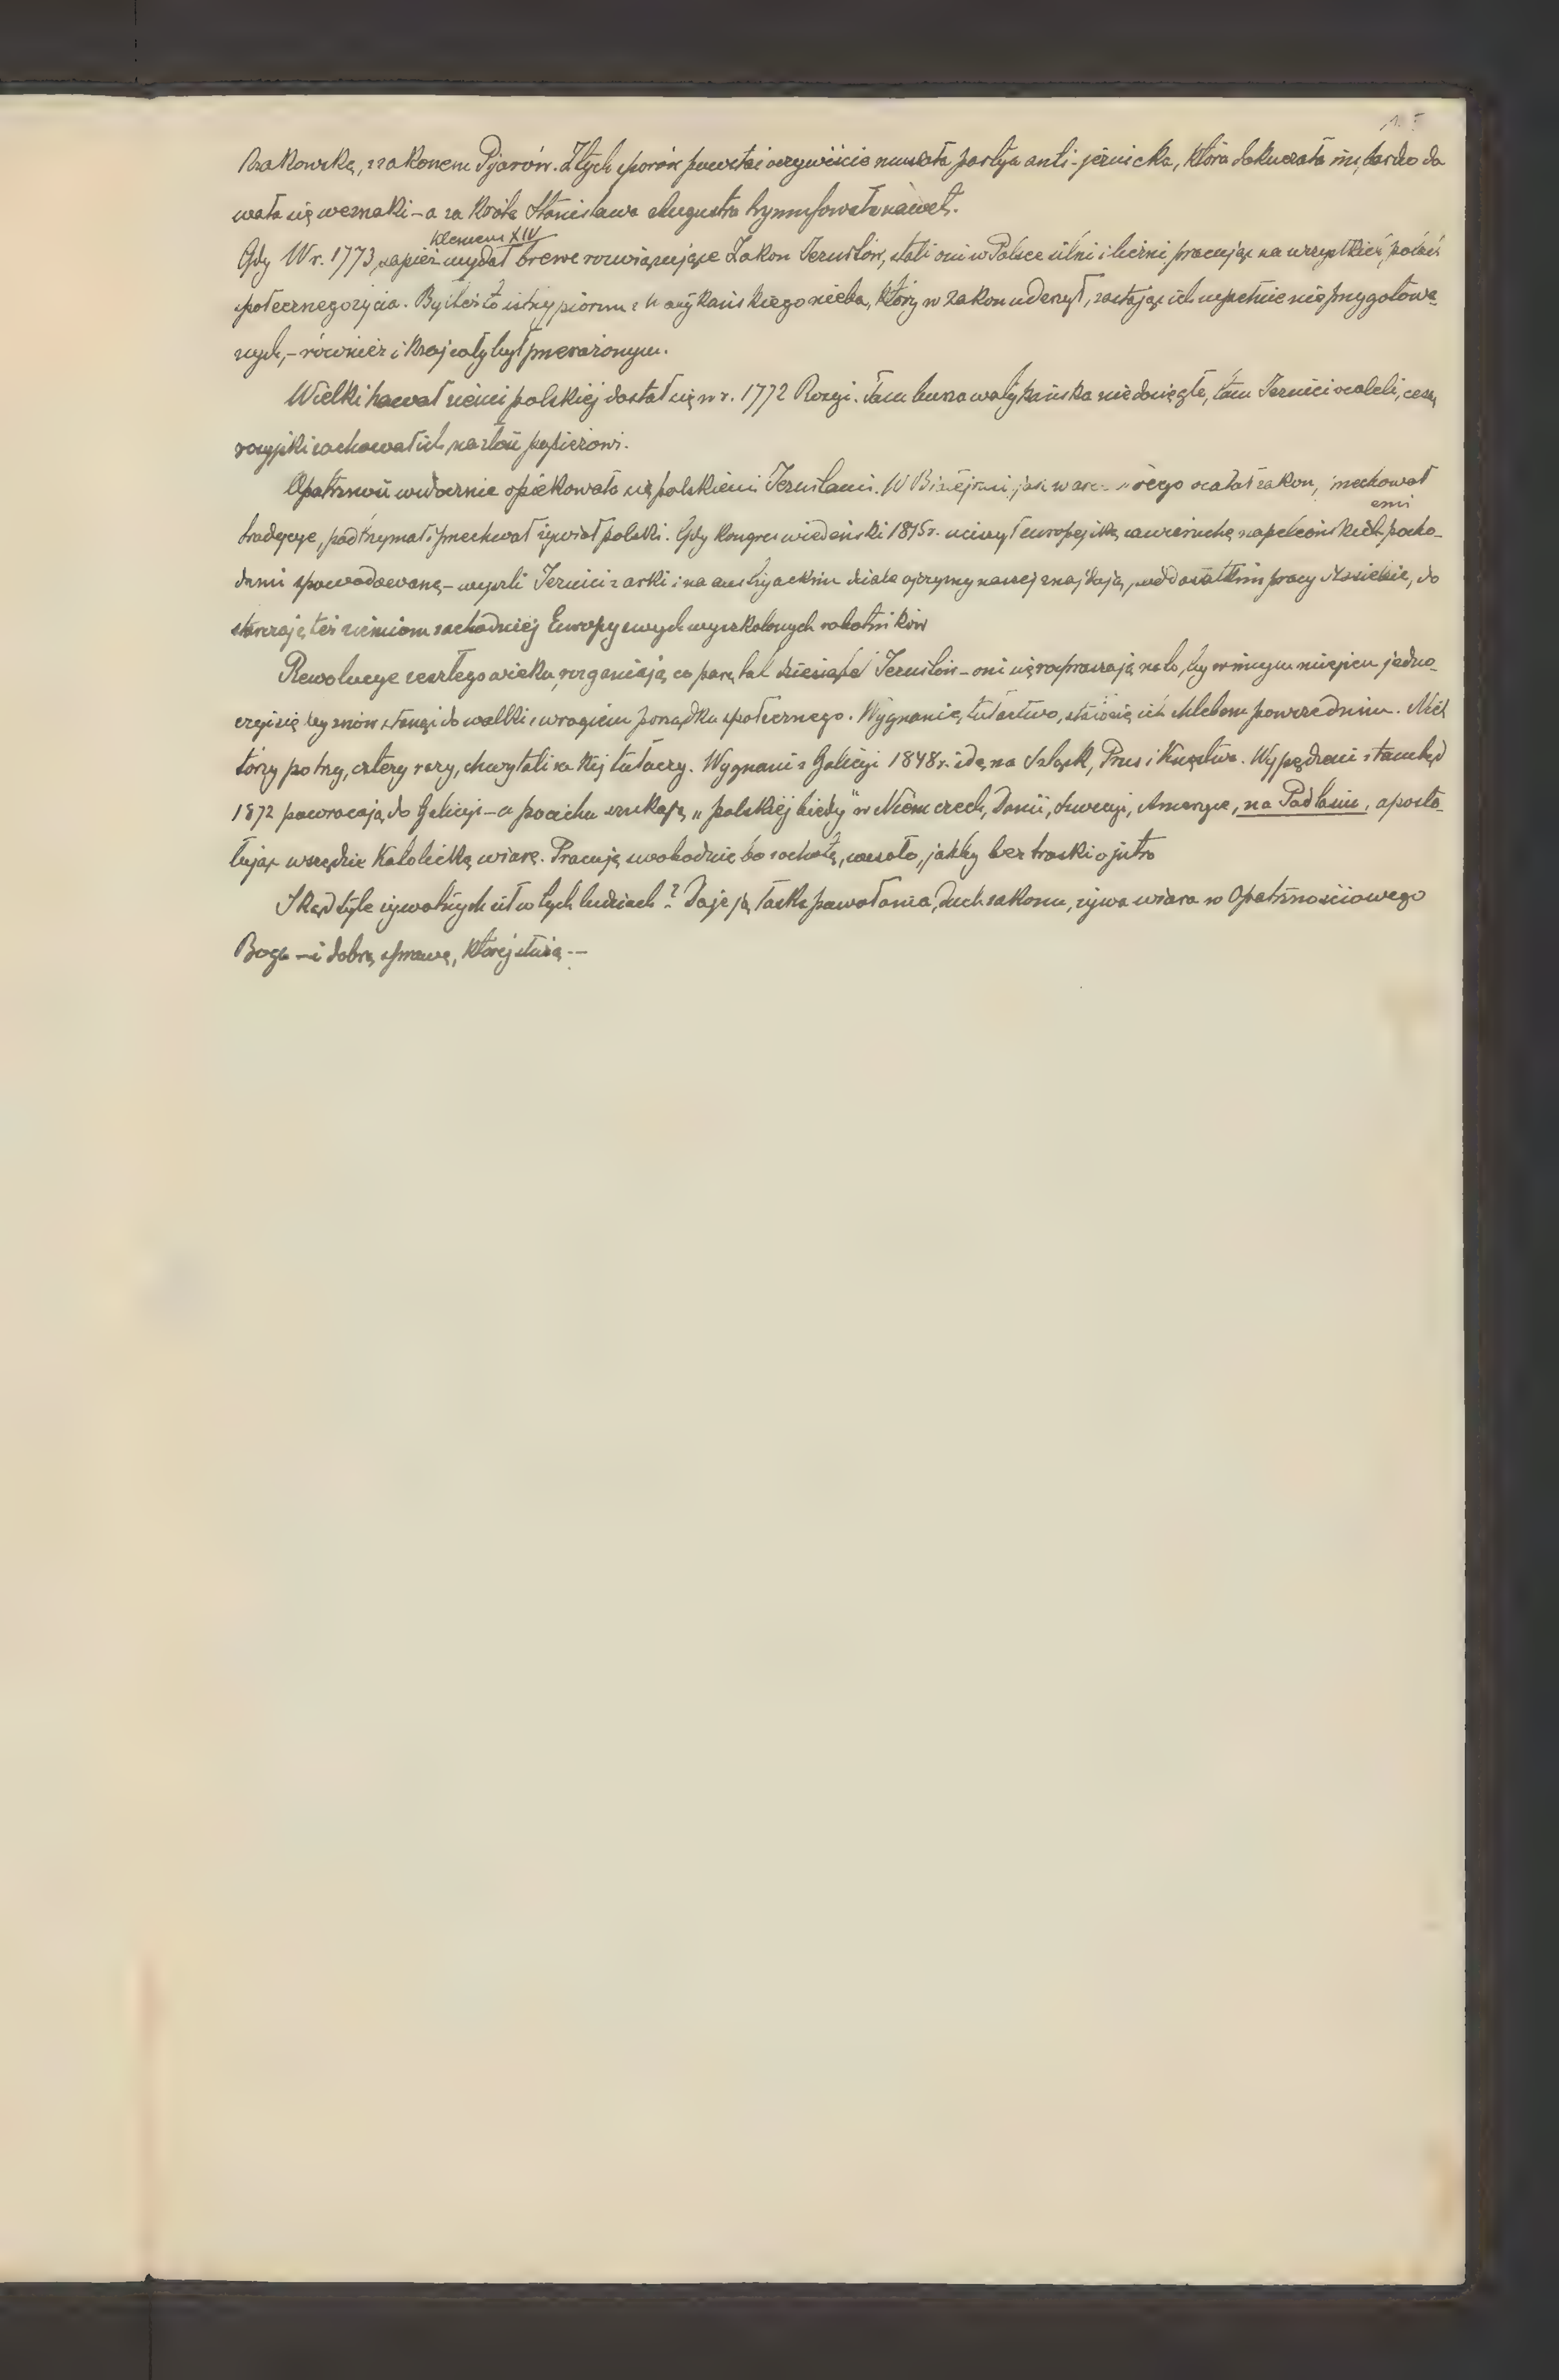 Krakowską, z zakonem Pijarów. Z tych sporów powstać oczywiście musiała partya anti-jezuicka, która dokuczała im, bardzo da
wała się weznaki – a za króla Stanisława Augusta tryumfowała nawet.
Klemens XIV
Gdy W r. 1773 papież wydał breve rozwiązujące Zakon Jezuitów, stali oni w Polsce silni i liczni pracując na wszystkich polach
społecznego życia. Był też to istny piorun z watykańskiego nieba, który w zakon uderzył, zastając ich zupełnie nieprzygotowa-
nych, – również i kraj cały był przerażonym.
Wielki kawał ziemi polskiej dostał się w r. 1772 Rosyi. Tam burza watykańska nie dosięgła, tam Jezuici ocaleli,
rosyjski zachował ich na złość papieżowi.
Opatrzność widocznie opiekowała się polskiemi Jezuitami. W jak w ocalał zakon, przechował
emi
tradycye, podtrzymał i przechował żywioł polski. Gdy kongres wiedeński 1815 r. uciszył europejską zawieruchę napoleońskich pocho-
dami spowodowaną – wyszli Jezuici z arki i na austryackim dziale ojczyzny naszej znajdują, pod dostatkiem pracy dla siebie, do
starczają też ziemiom zachodniej Europy swych wyszkolonych robotników
Rewolucye zeszłego wieku, rozganiają co parę lat dziesiąt Jezuitów – oni się rozpraszają na to, by w innym miejscu jedno-
czyć się by znów stanąć do walki z wrogiem porządku społecznego. Wygnanie, tułactwo, stało się ich chlebem powszednim. Niek
tórzy po trzy, cztery razy, chwytali za kij tułaczy. Wygnani z Galicyi 1848 r. idą na Szląsk, Prus i Księstwa. Wypędzeni stamtąd
1872 powracają do Galicyi – a po cichu szukają „polskiej biedy” w Niemczech, Danii, Szwecyi, Ameryce, na Podlasiu, aposto-
łując wszędzie Katolicką wiarę. Pracują swobodnie bo z ochotą, wesoło, jakby bez troski o jutro
Skąd tyle żywotnych sił w tych ludziach? Daje ją łaska powołania, duch zakonu, żywa wiara w Opatrznościowego
Boga – i dobrą sprawę, której służą –